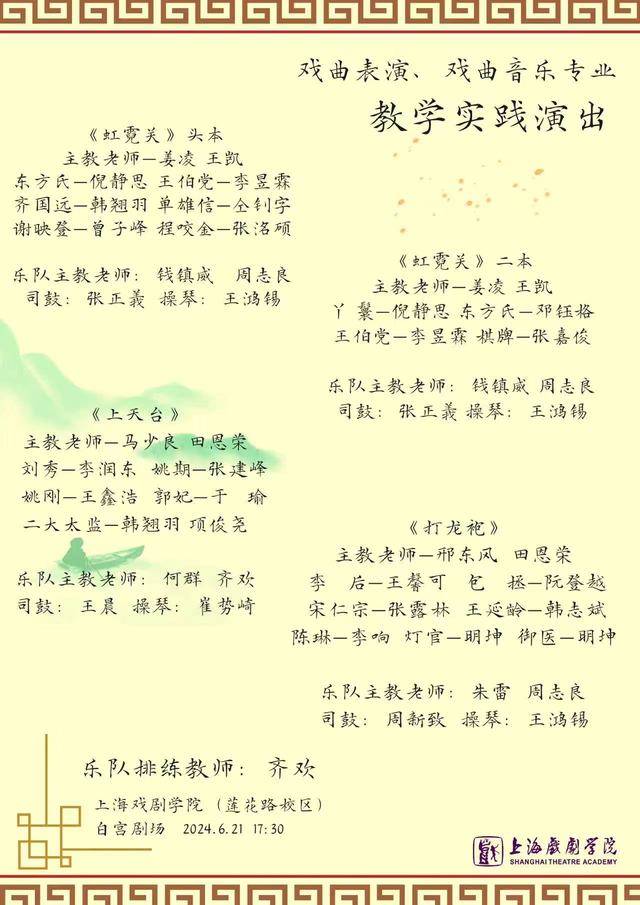 戏曲表演、戏曲音乐专业
教学实践演出
《虹霓关》头本
主教老师—姜凌 王凯
东方氏—倪静思 王伯党—李昱霖
齐国远—韩翘羽 单雄信—仝钊宇
谢映登—曾子峰 程咬金—张洺硕
乐队主教老师：钱镇威 周志良
司鼓：张正義 操琴：王鸿锡
《虹霓关》二本
主教老师—姜凌 王凯
丫 鬟—倪静思 东方氏—邓钰格
王伯党—李昱霖 棋牌—张嘉俊
乐队主教老师：钱镇威 周志良
司鼓：张正義 操琴：王鸿锡
《上天台》
主教老师—马少良 田恩荣
刘秀—李润东 姚期—张建峰
姚刚—王鑫浩 郭妃—于 瑜
二大太监—韩翘羽 项俊尧
乐队主教老师：何群 齐欢
司鼓：王晨 操琴：崔势崎
《打龙袍》
主教老师—邢东风 田恩荣
李 后—王馨可 包 拯—阮登越
宋仁宗—张露林 王延龄—韩志斌
陈琳—李响 灯官—明坤 御医—明坤
乐队主教老师：朱雷 周志良
司鼓：周新致 操琴：王鸿锡
乐队排练教师：齐欢
上海戏剧学院（莲花路校区）
白宫剧场 2024.6.21 17:30
上海戲劇学院
SHANGHAI THEATRE ACADEMY